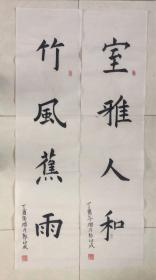 室雅人和
丁酉年
竹風蕉雨
丁酉年